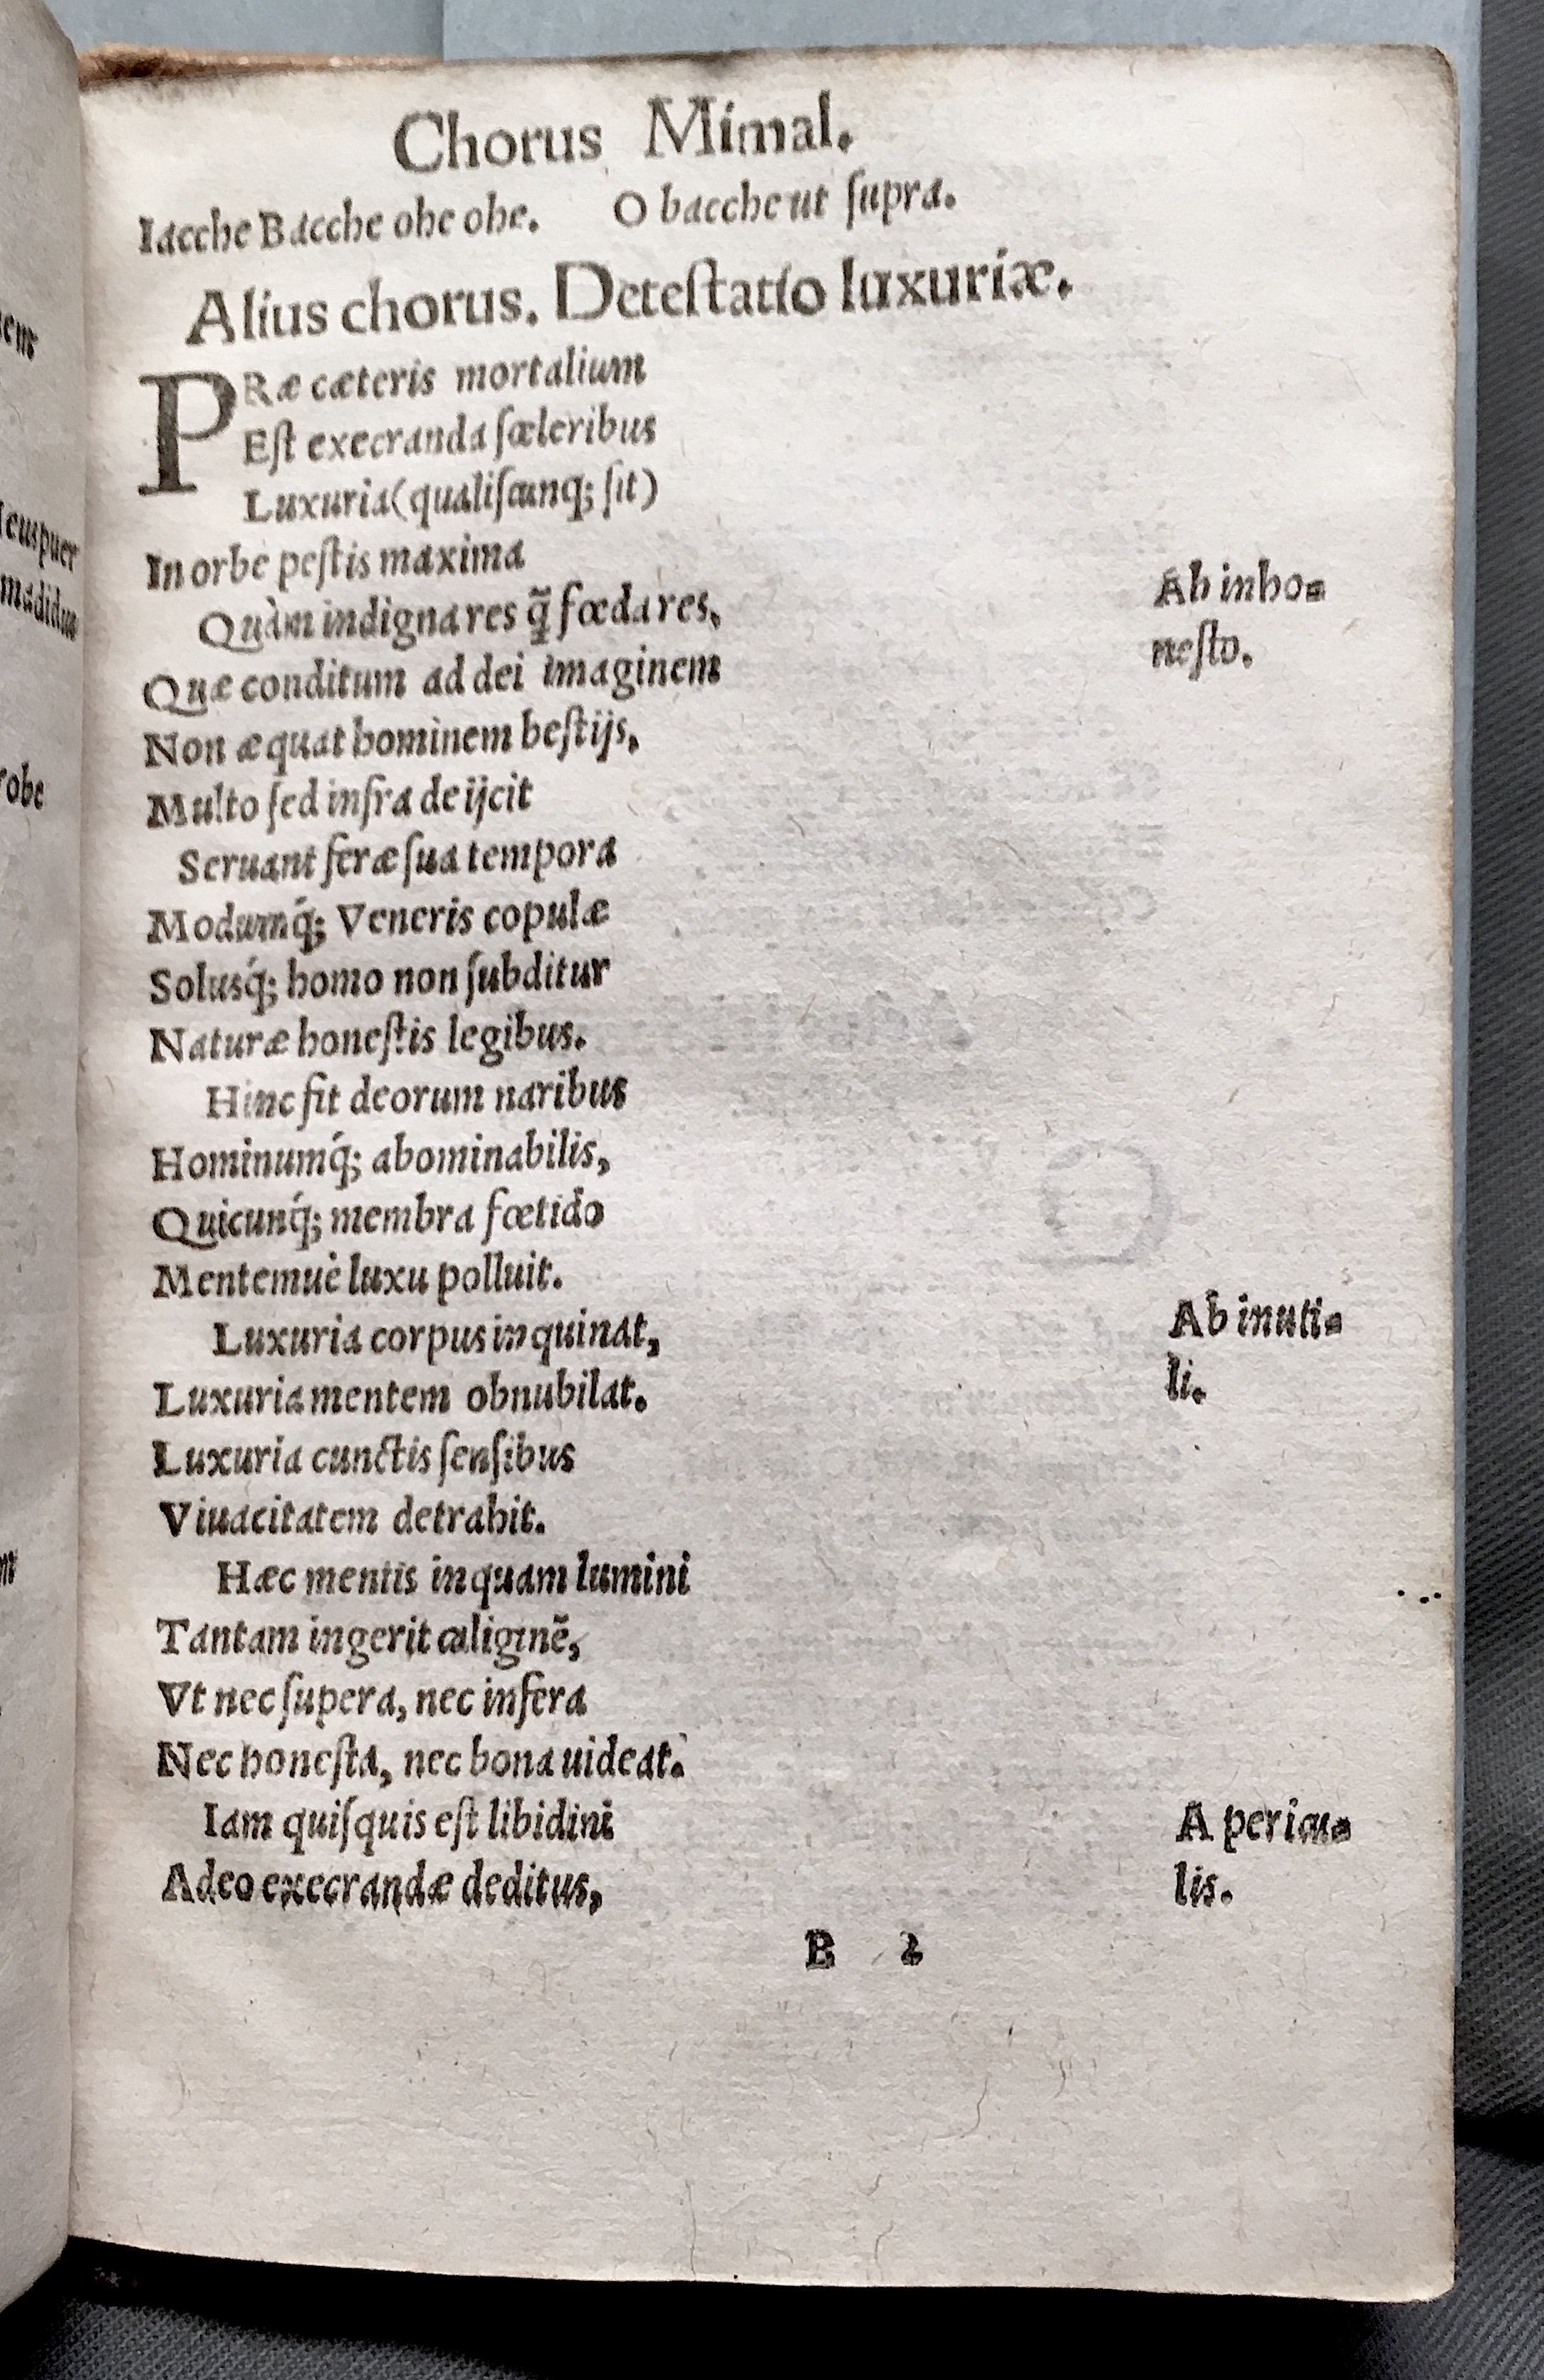 Chorus Mimal.
Iacche Bacche ohe ohe. O bacche ut ſupra.
Alius chorus. Deteſtatio luxuriæ.
PRæ cæteris mortalium
Eſt execranda ſceleribus
Luxuria (qualiſcunq; ſit)
In orbe peſtis maxima
Quàm indigna res q̃ fœda res,
Ab inho-
neſto.
Quæ conditum ad dei imaginem
Non æquat hominem beſtijs,
Multo ſed infra deijcit
Seruant feræ ſua tempora
Modumq́; Veneris copulæ
Solusq́; homo non ſubditur
Naturæ honeſtis legibus.
Hinc fit deorum naribus
Hominumq́; abominabilis,
Quicunq́; membra fœtido
Mentemuè luxu polluit.
Luxuria corpus inquinat,
Ab inuti-
li.
Luxuria mentem obnubilat.
Luxuria cunctis ſenſibus
Viuacitatem detrahit.
Hæc mentis inquam lumini
Tantam ingerit caliginẽ,
Vt nec ſupera, nec infera
Nec honeſta, nec bona uideat.
Iam quiſquis eſt libidini
A pericu-
lis.
Adeo execrandæ deditus,
B 2